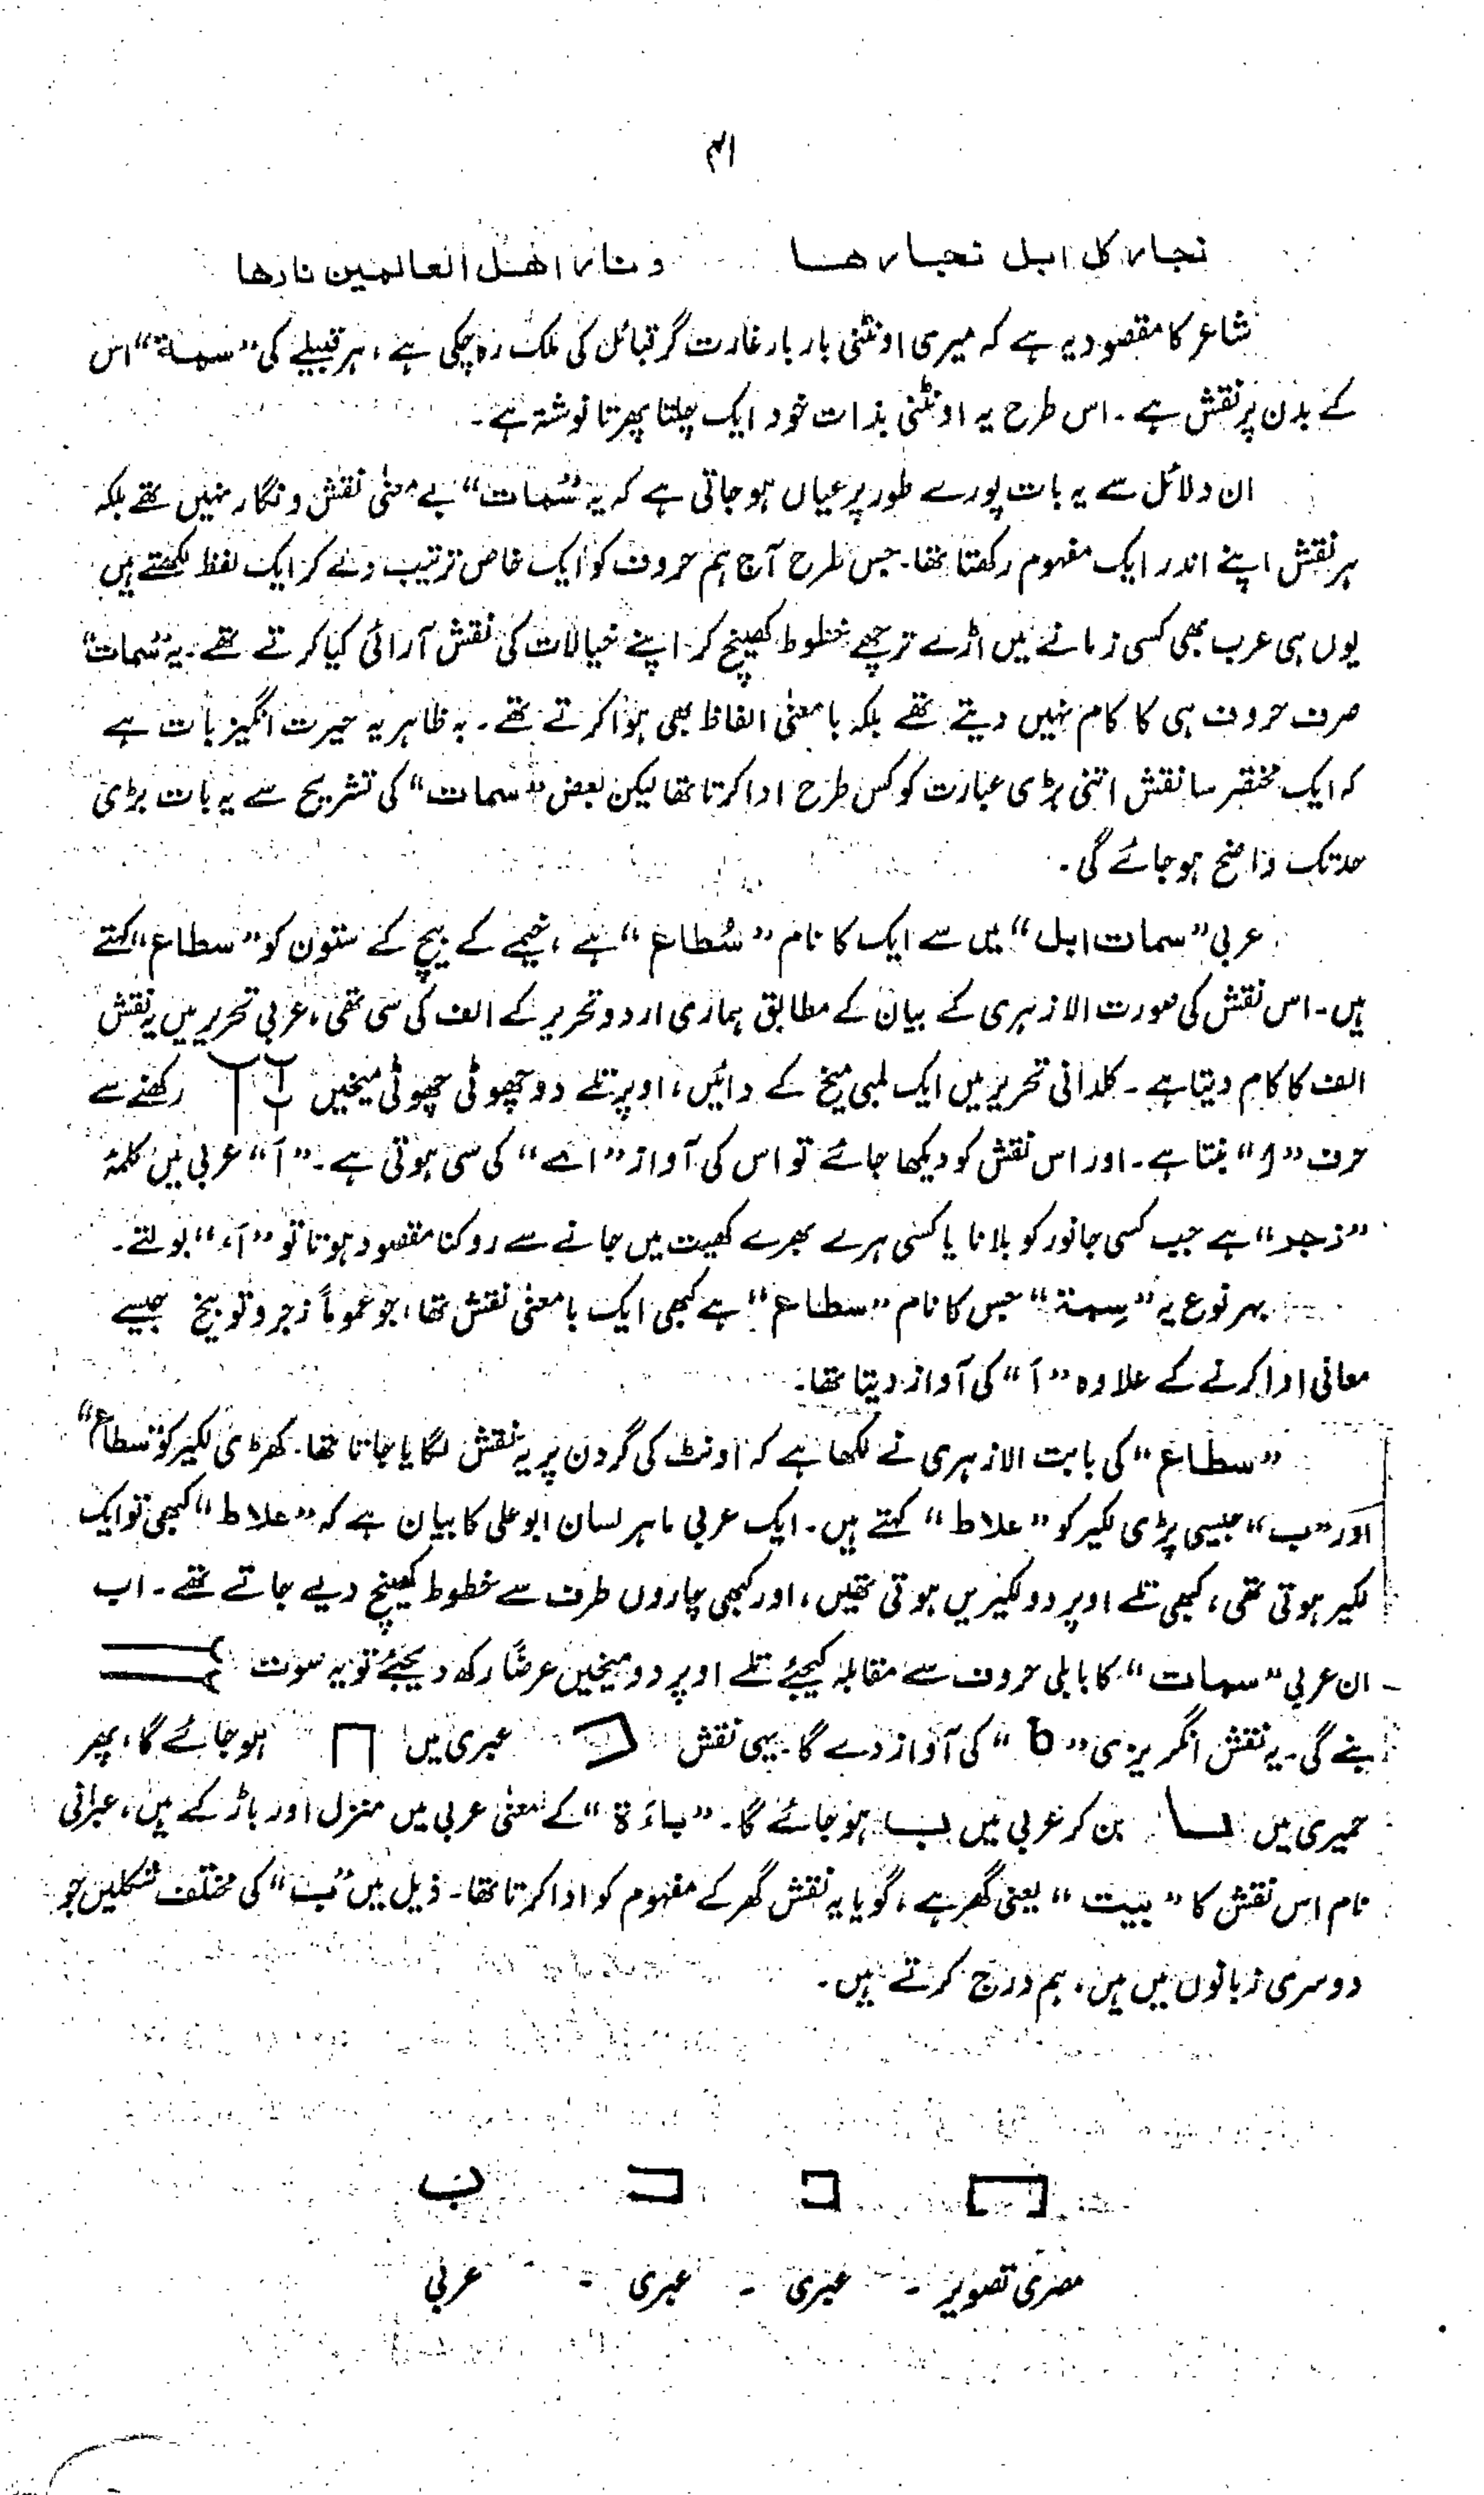 ۴۱
نجار کل ابل نجارها ونار اهل العالمین نارها
شاعر کا مقصود یہ ہے کہ میری اونٹنی بار بار غارت گر قبائل کی ملک رہ چکی ہے، ہر قبیلے کی “سمة” اس
کے بدن پر نقش ہے۔ اس طرح یہ اونٹنی بذات خود ایک چلتا پھرتا نوشتہ ہے۔
ان دلائل سے یہ بات پورے طور پر عیاں ہو جاتی ہے کہ یہ “سُمات” بے معنیٰ نقش و نگار نہیں تھے بلکہ
ہر نقش اپنے اندر ایک مفہوم رکھتا تھا۔ جس طرح آج ہم حروف کو ایک خاص ترتیب دے کر ایک لفظ لکھتے ہیں
یوں ہی عرب بھی کسی زمانے میں اڑے ترچھے خطوط کھینچ کر اپنے خیالات کی نقش آرائی کیا کرتے تھے۔ یہ “سُمات”
صرف حروف ہی کا کام نہیں دیتے تھے بلکہ بامعنیٰ الفاظ بھی ہوا کرتے تھے۔ بہ ظاہر یہ حیرت انگیز بات ہے
کہ ایک مختصر سا نقش اتنی بڑی عبارت کو کس طرح ادا کرتا تھا لیکن بعض “سمات” کی تشریح سے یہ بات بڑی
حد تک واضح ہو جائے گی۔
عربی “سمات ابل” میں سے ایک کا نام “سُطاع” ہے، خیمے کے بیچ کے ستون کو “سطاع” کہتے
ہیں۔ اس نقش کی صورت الازہری کے بیان کے مطابق ہماری اردو تحریر کے الف کی سی تھی، عربی تحریر میں یہ نقش
الف کا کام دیتا ہے۔ کلدانی تحریر میں ایک لمبی میخ کے دائیں، اوپر تلے دو چھوٹی چھوٹی میخیں رکھنے سے
حرف “ا” بنتا ہے۔ اور اس نقش کو دیکھا جائے تو اس کی آواز “اے” کی سی ہوتی ہے۔ “آ” عربی میں کلمۂ
“زجر” ہے جب کسی جانور کو بلانا یا کسی ہرے بھرے کھیت میں جانے سے روکنا مقصود ہوتا تو “آء” بولتے۔
بہر نوع یہ “سِمة” جس کا نام “سطاع” ہے کبھی ایک بامعنیٰ نقش تھا، جو عموماً زجر و توبیخ جیسے
معانی ادا کرنے کے علاوہ “آ” کی آواز دیتا تھا۔
“سطاع” کی بابت الازہری نے لکھا ہے کہ اونٹ کی گردن پر یہ نقش لگایا جاتا تھا۔ کھڑی لکیر کو “سطاع”
اور “ب” جیسی پڑی لکیر کو “علاط” کہتے ہیں۔ ایک عربی ماہر لسان ابو علی کا بیان ہے کہ “علاط” کبھی تو ایک
لکیر ہوتی تھی، کبھی تلے اوپر دو لکیریں ہوتی تھیں، اور کبھی چاروں طرف سے خطوط کھینچ دیے جاتے تھے۔ اب
ان عربی “سمات” کا بابلی حروف سے مقابلہ کیجئے تلے اوپر دو میخیں عرضاً رکھ دیجئے تو یہ سوت
بنے گی۔ یہ نقش انگریزی “b” کی آواز دے گا۔ یہی نقش عبری میں ہو جائے گا، پھر
حمیری میں بن کر عربی میں ب ہو جائے گا۔ “باءۃ” کے معنیٰ عربی میں منزل اور باڑ کے ہیں، عبرانی
نام اس نقش کا “بیت” یعنی گھر ہے، گویا یہ نقش گھر کے مفہوم کو ادا کرتا تھا۔ ذیل میں “ب” کی مختلف شکلیں جو
دوسری زبانوں میں ہیں، ہم درج کرتے ہیں۔
ب
مصری تصویر - عبری - عبری - عربی